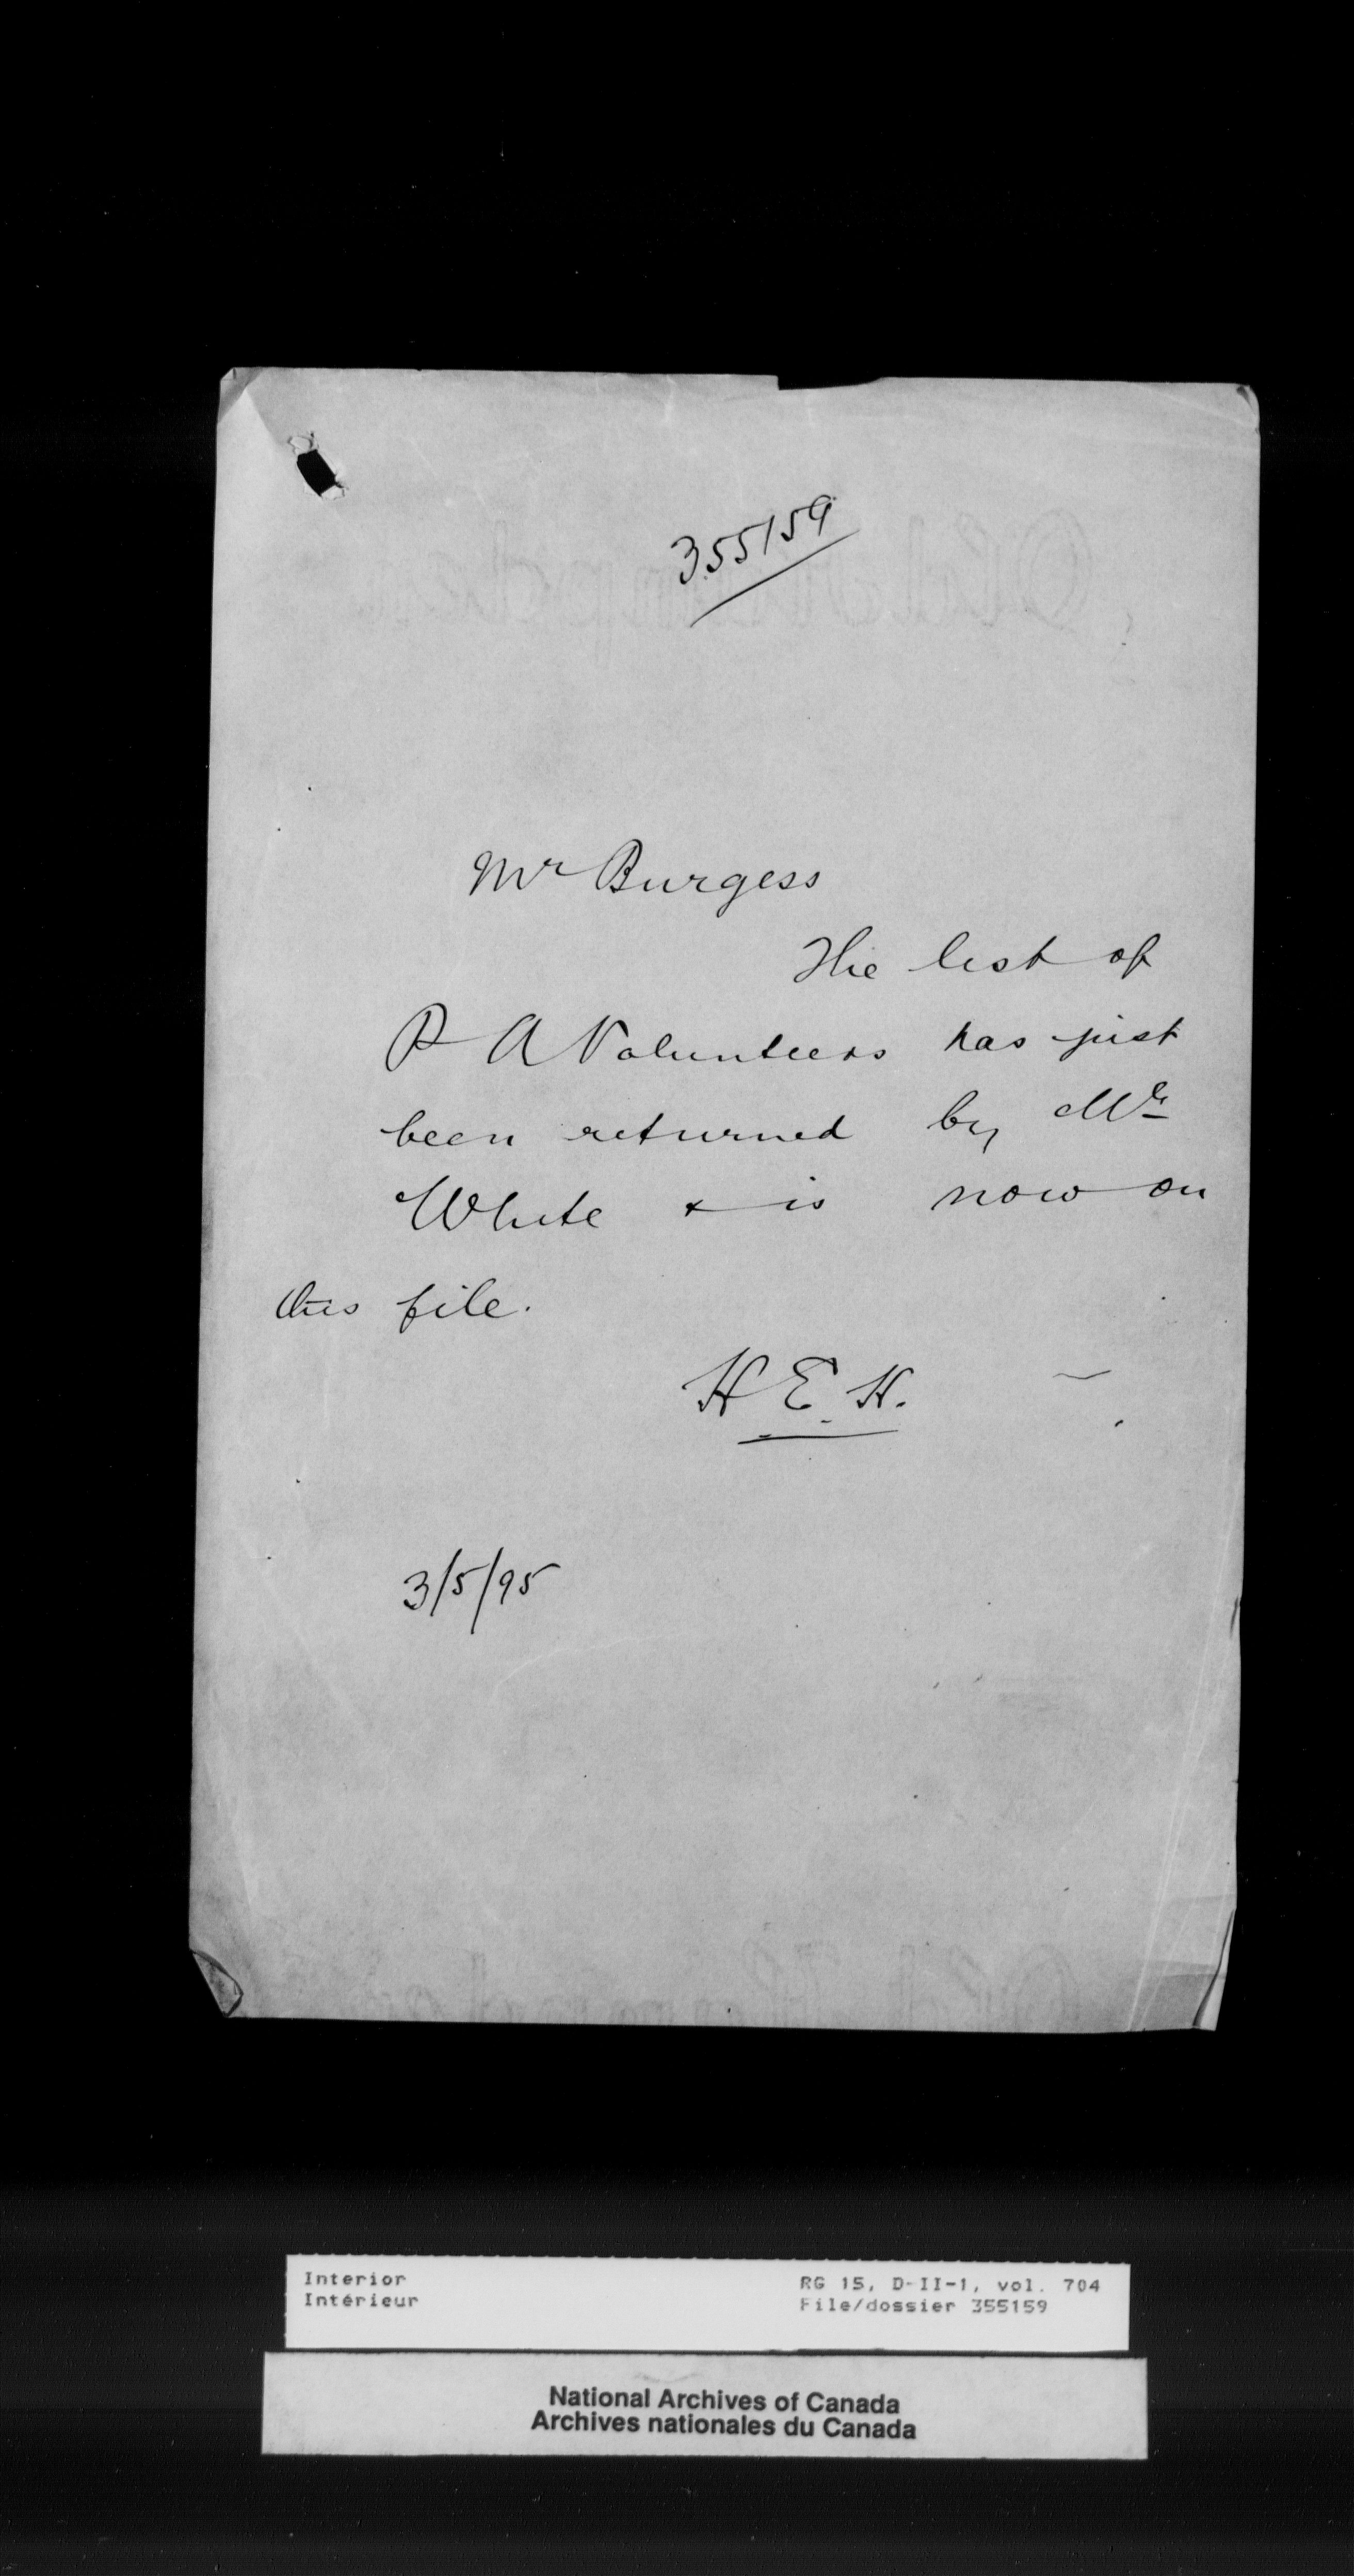 355159
Mr Burgess
The list of
P A Volunteers has just
been returned by Mr
White & is now on
this file.
H E. H.
3/5/95
Interior
Intérieur
RG 15, D-II-1, vol. 704
File/dossier 355159
National Archives of Canada
Archives nationales du Canada